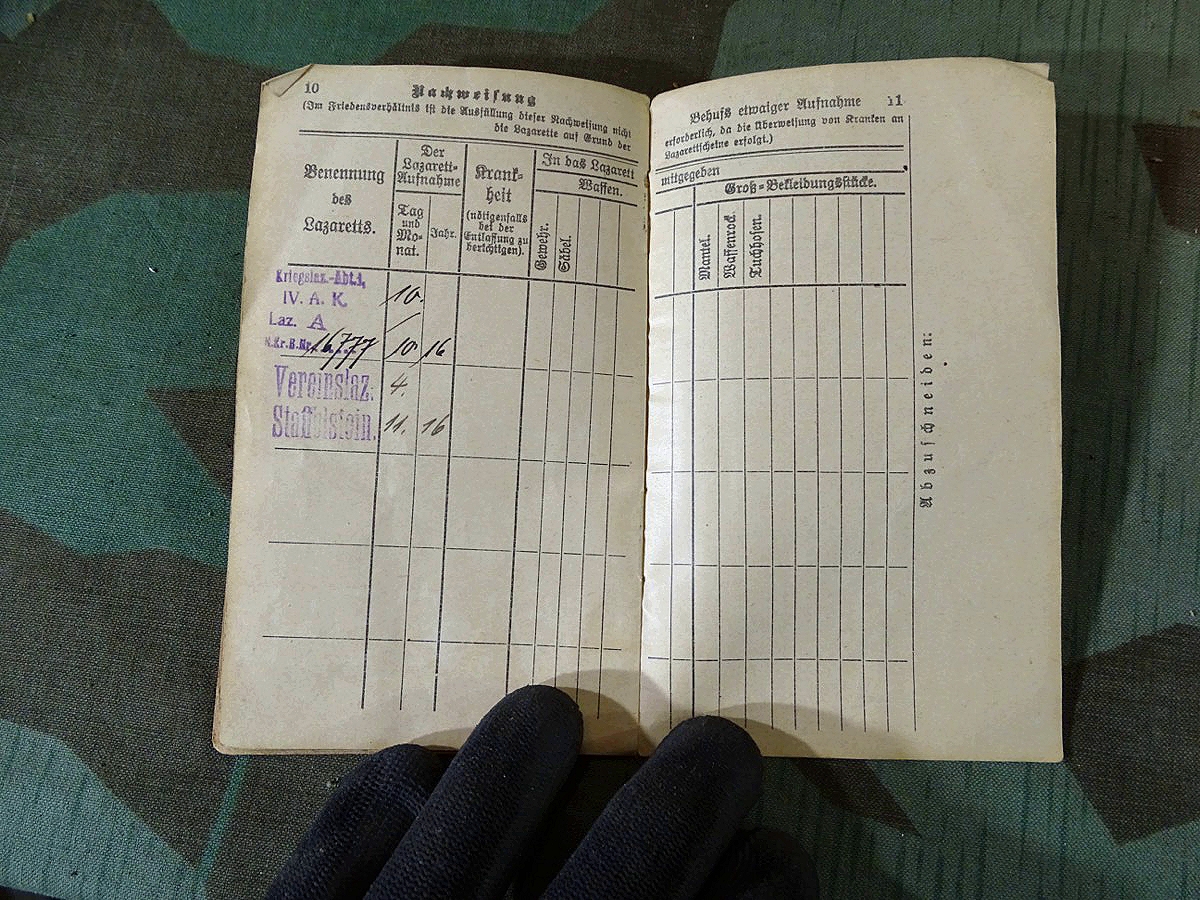 10
Nachweisung
(Im Friedensverhältnis ist die Ausfüllung dieser Nachweisung nicht
die Lazarette auf Grund der
Benennung
des
Lazaretts.
Der
Lazarett-
Aufnahme
Tag
und
Mo-
nat.
Jahr.
Krank-
heit
(nötigenfalls
bei der
Entlassung zu
berichtigen).
In das Lazarett
Waffen.
Gewehr.
Säbel.
Kriegslaz.-Abt.1,
IV. A. K.
Laz. A
16777
10.
10. 16
Vereinslaz.
Staffelstein.
4.
11. 16
Behufs etwaiger Aufnahme 11
erforderlich, da die Überweisung von Kranken an
Lazarettscheine erfolgt.)
mitgegeben
Groß-Bekleidungsstücke.
Mantel.
Waffenrock.
Tuchhosen.
Abzuschneiden: